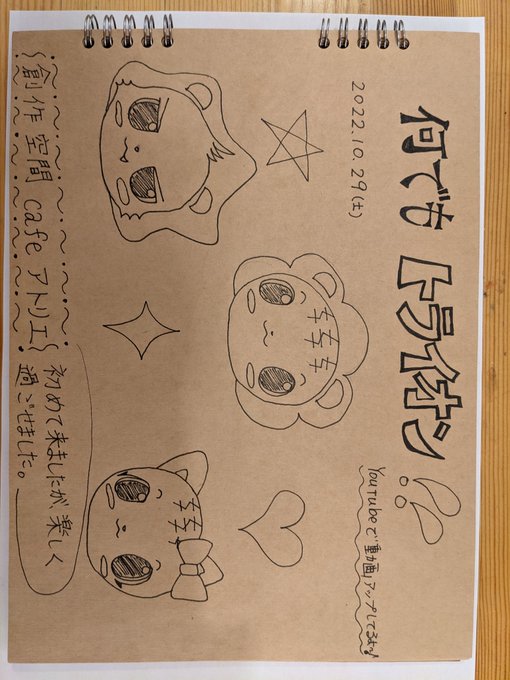 何でも トライオン
2022.10.29(土)
YouTubeで「動画」アップしてるよ〜!
創作空間 cafe アトリエ
初めて来ましたが、楽しく
過ごせました。